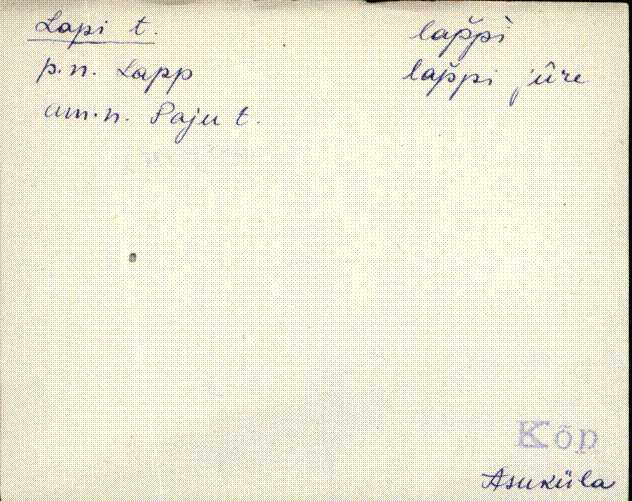 Lapi t. lap̆pì
p.n. Lapp lap̆pi jûre
am.n. Saju t.
Kõp
Asuküla